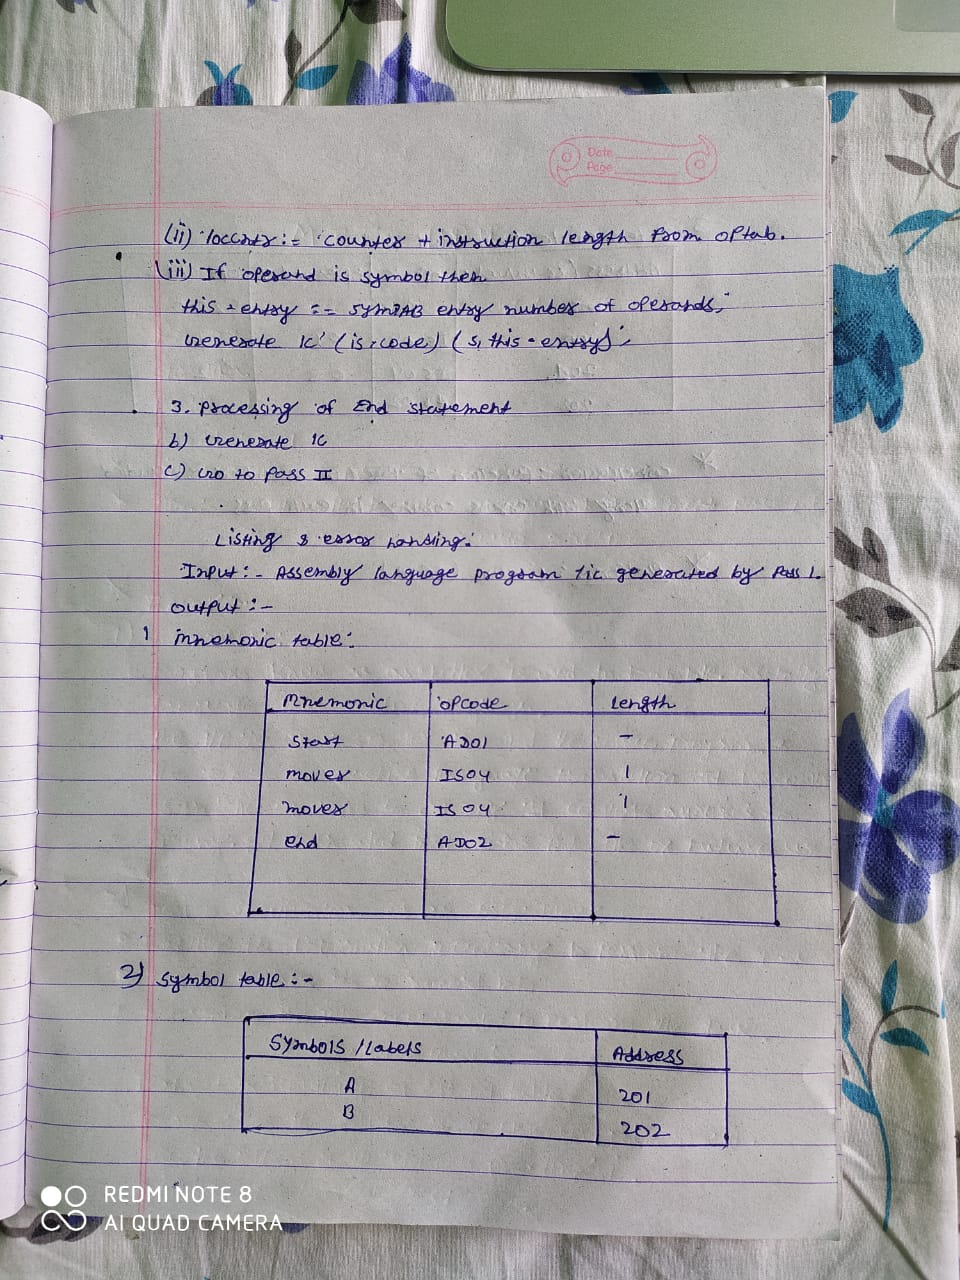 Date
Page
(ii) loccntr := counter + instruction length from optab.
(iii) If operand is symbol then
this - entry := SYMTAB entry number of operands;
Generate IC' (is, code) (s, this - entry);
3. Processing of End statement
b) Generate IC
c) Go to Pass II
Listing & error handling:
Input :- Assembly language program tic generated by Pass 1.
Output :-
1 mnemonic table :
Mnemonic opcode length
Start AD01 -
mover IS04 1
mover IS04 1
end AD02 -
2) Symbol table :-
Symbols / labels Address
A 201
B 202
REDMI NOTE 8
AI QUAD CAMERA